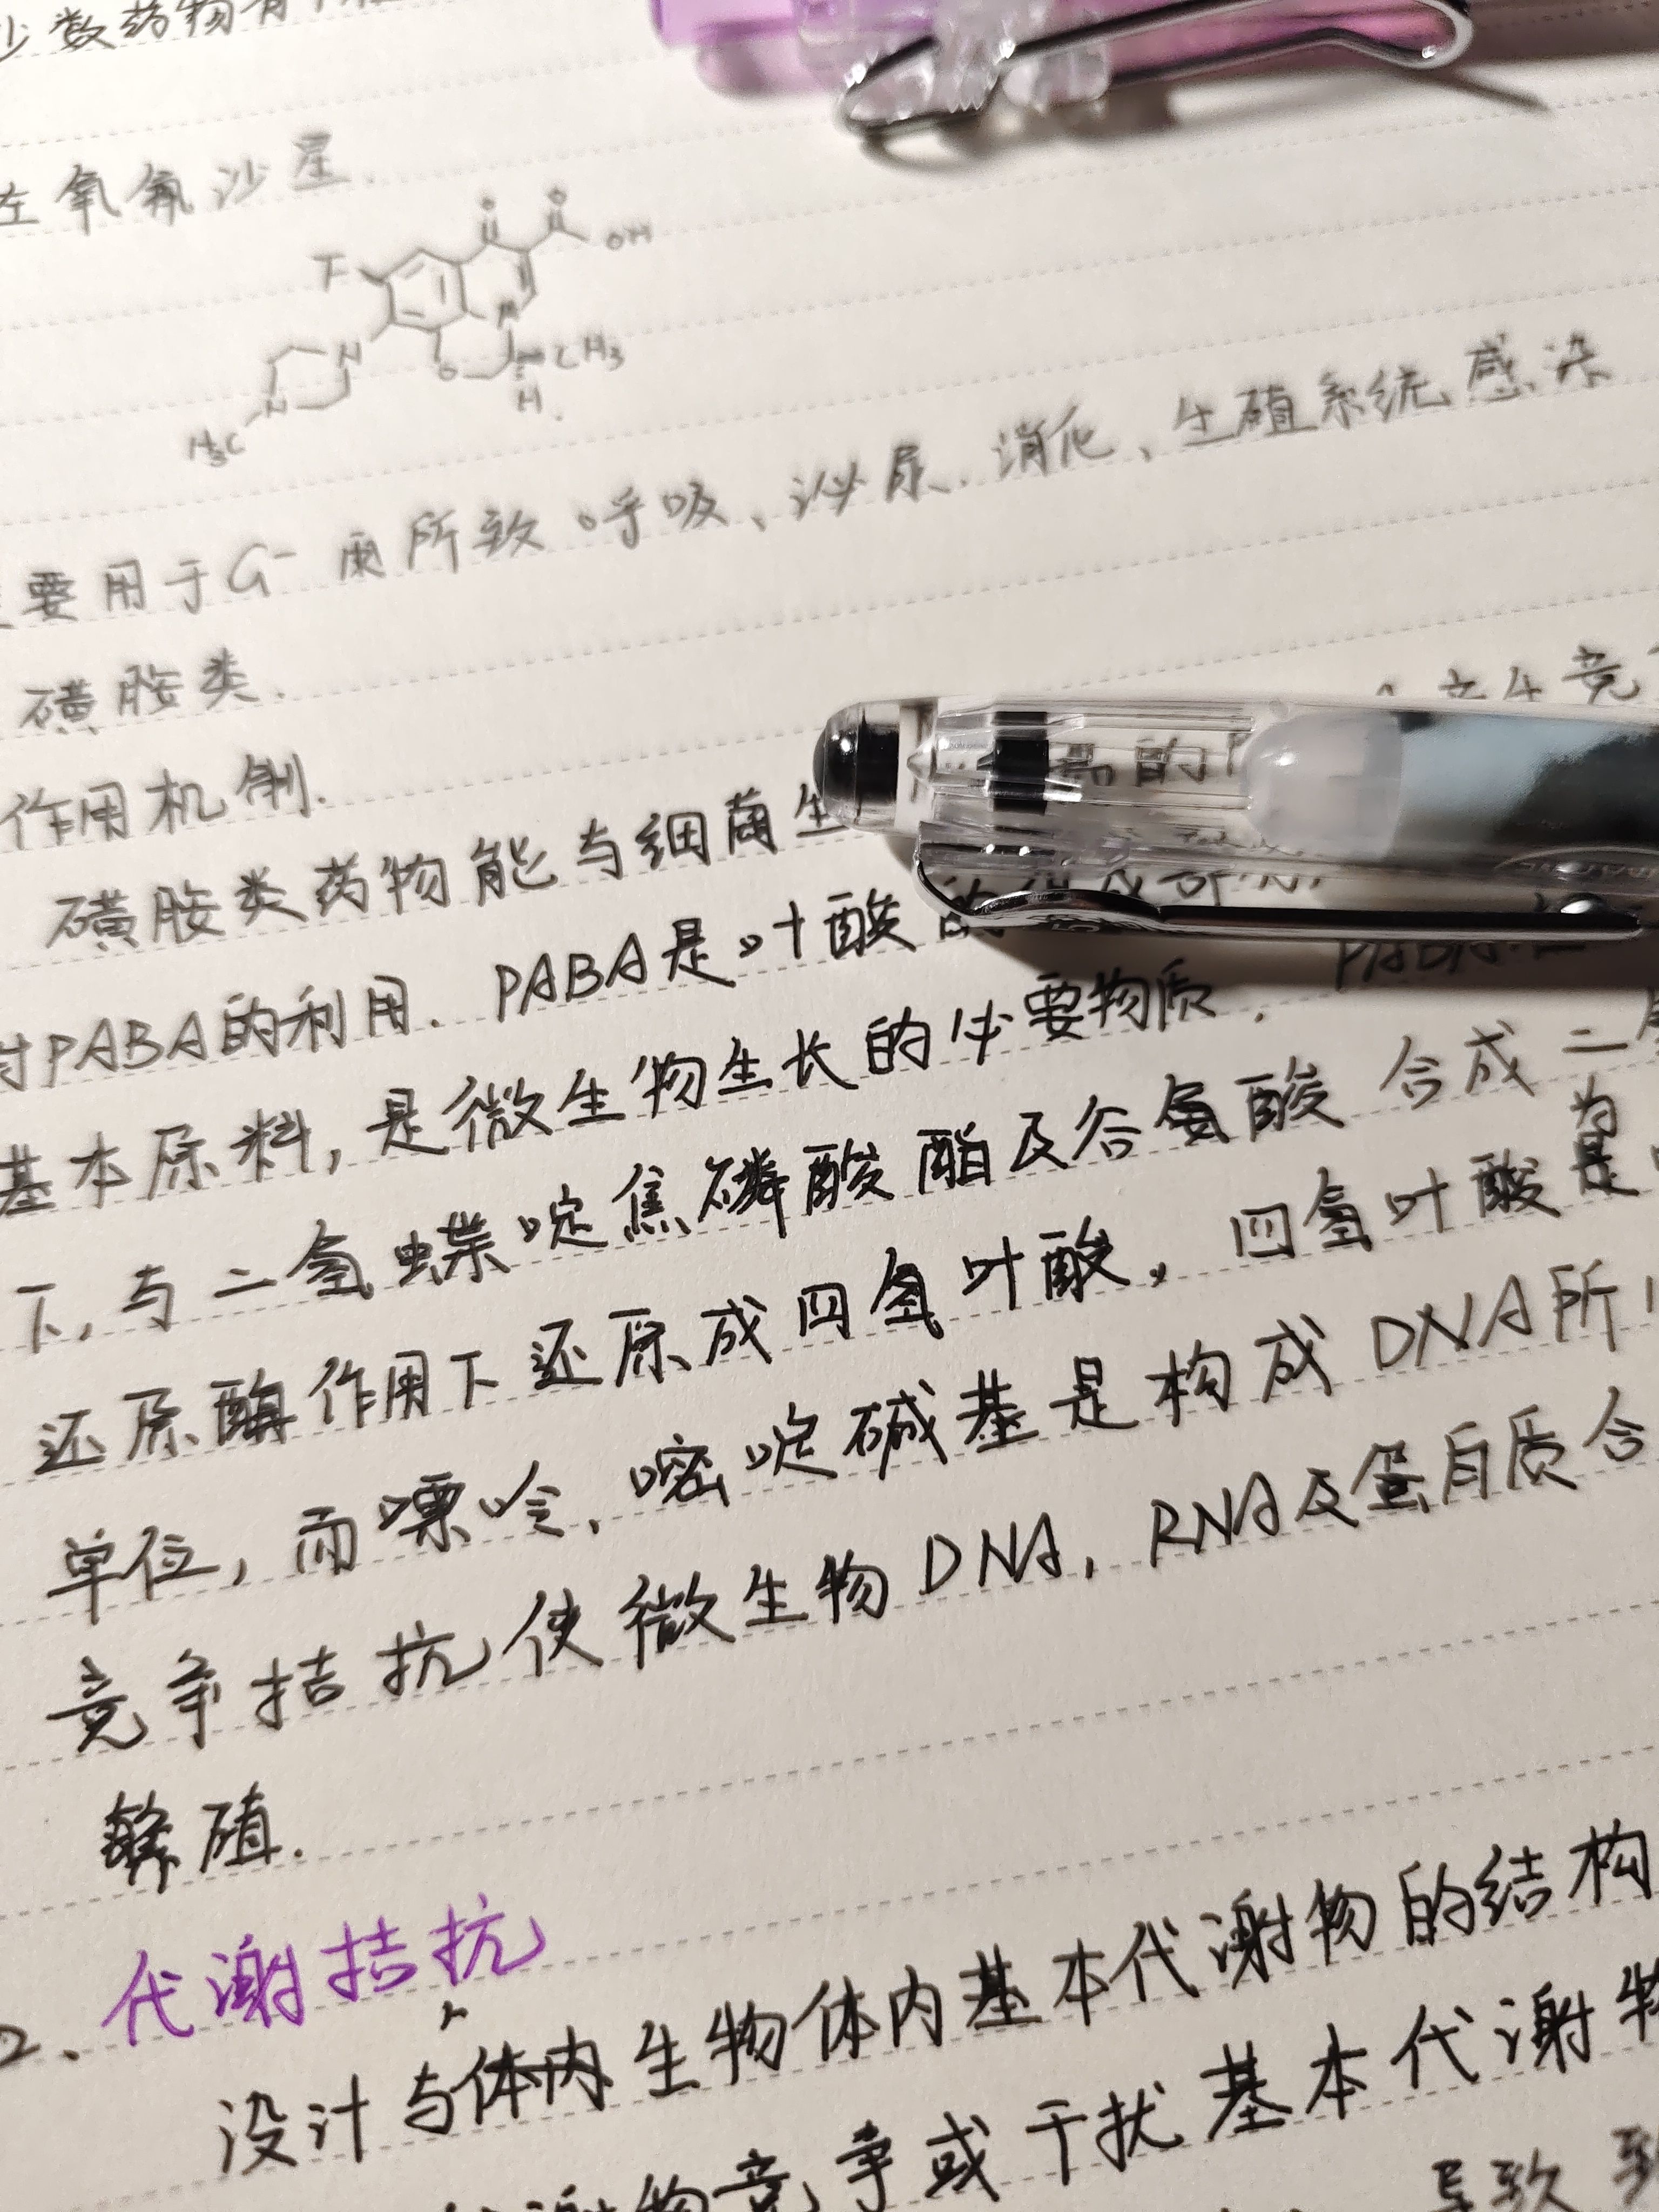 少数药物有
左氧氟沙星.
O O
OH
F
N
N
O CH3
H
N
H3C
要用于G⁻菌所致呼吸、泌尿、消化、生殖系统感染
磺胺类.
作用机制.
磺胺类药物能与细菌生 的 产生竞
对PABA的利用. PABA是叶酸的组成部分
基本原料,是微生物生长的必要物质. PABA在
下,与二氢蝶啶焦磷酸酯及谷氨酸合成二
还原酶作用下还原成四氢叶酸。四氢叶酸是为
单位,而嘌呤、嘧啶碱基是构成DNA所
竞争拮抗使微生物DNA、RNA及蛋白质合
繁殖.
2、代谢拮抗
设计与生物体内基本代谢物的结构
谢物竞争或干扰基本代谢物
导致